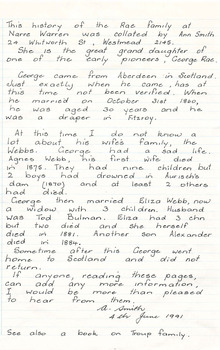 This history of the Rae family at
Narre Warren was collated by Ann Smith
24 Whitworth St, Westmead 2145.
She is the great grand daughter of
one of the early pioneers, George Rae.
George came from Aberdeen in Scotland.
Just exactly when he came, has at
this time not been verified. When
he married on October 31st 1860,
he was aged 30 years and he
was a draper in Fitzroy.
At this time I do not know a
lot about his wife's family, the
Webbs. George had a sad life.
Agnes Webb, his first wife died
in 1875. They had nine children but
2 boys had drowned in Aurisdis
dam (1870) and at least 2 others
had died.
George then married Eliza Webb, now
a widow with 3 children. Husband
was Tod Bulman. Eliza had 3 chn
but two died and she herself
died in 1881. Another son Alexander
died in 1884.
Sometime after this George went
home to Scotland and did not
return.
If anyone, reading these pages,
can add any more information
I would be more than pleased
to hear from them.
A. Smith
June 1991
See also a book on Troup family.